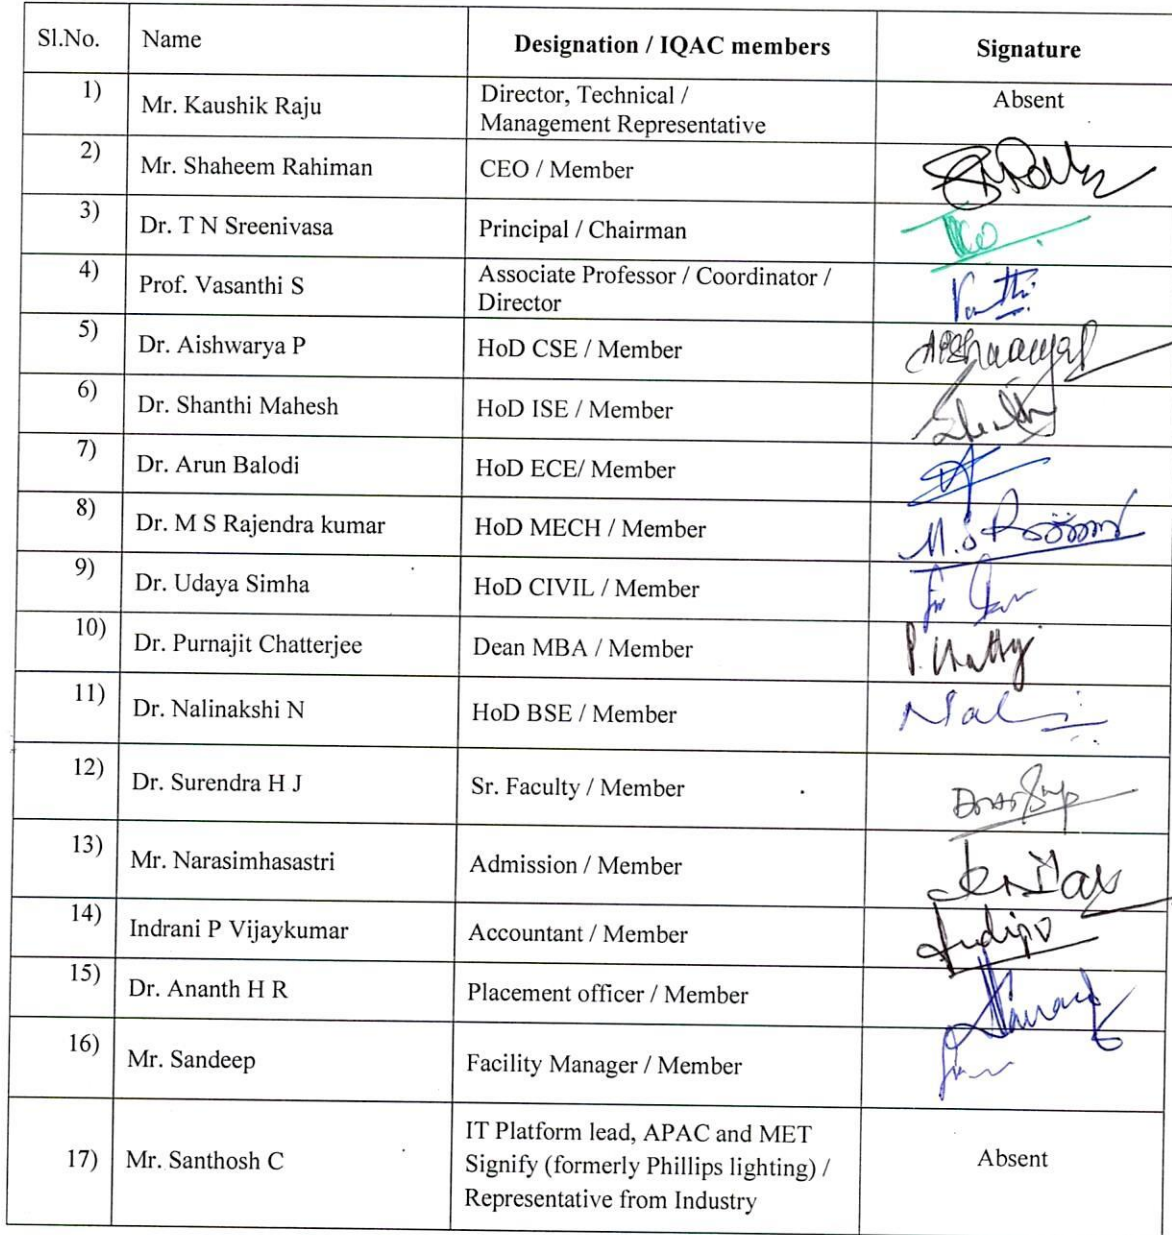 Sl.No. Name Designation / IQAC members Signature
1) Mr. Kaushik Raju Director, Technical / Absent
Management Representative
2) Mr. Shaheem Rahiman CEO / Member
3) Dr. T N Sreenivasa Principal / Chairman
4) Prof. Vasanthi S Associate Professor / Coordinator /
Director
5) Dr. Aishwarya P HoD CSE / Member
6) Dr. Shanthi Mahesh HoD ISE / Member
7) Dr. Arun Balodi HoD ECE/ Member
8) Dr. M S Rajendra kumar HoD MECH / Member
9) Dr. Udaya Simha HoD CIVIL / Member
10) Dr. Purnajit Chatterjee Dean MBA / Member
11) Dr. Nalinakshi N HoD BSE / Member
12) Dr. Surendra H J Sr. Faculty / Member
13) Mr. Narasimhasastri Admission / Member
14) Indrani P Vijaykumar Accountant / Member
15) Dr. Ananth H R Placement officer / Member
16) Mr. Sandeep Facility Manager / Member
IT Platform lead, APAC and MET
17) Mr. Santhosh C Signify (formerly Phillips lighting) / Absent
Representative from Industry